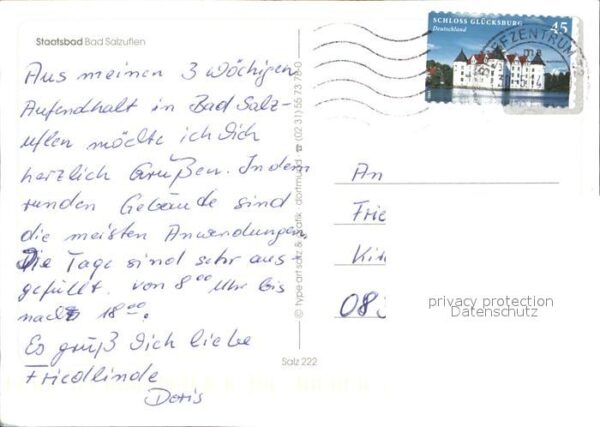 Staatsbad Bad Salzuflen
Aus meinen 3 wöchigen
Aufendhalt in Bad Salz-
uflen möchte ich Dich
herzlich Grüßen. In dem
runden Gebäude sind
die meisten Anwendungen
Die Tage sind sehr aus-
gefüllt. von 8⁰⁰ Uhr bis
nach 18⁰⁰.
Es grüß Dich liebe
Friedlinde
Doris
© type art satz & grafik · dortmund · ☎ (02 31) 55 73 76-0
Salz 222
SCHLOSS GLÜCKSBURG 45
Deutschland
BRIEFZENTRUM 32
An
Frie
Kin
083
privacy protection
Datenschutz